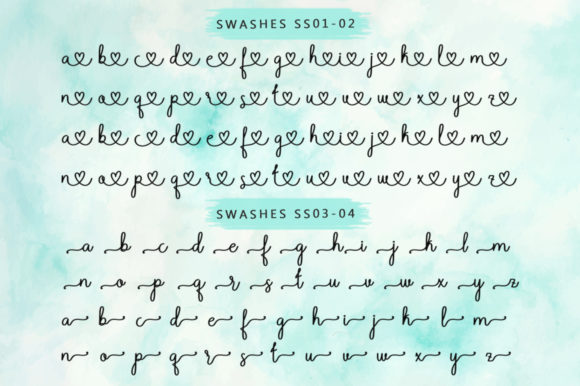 SWASHES SS01-02
a b c d e f g h i j k l m
n o q p r s t u v w x y z
a b c d e f g h i j k l m
n o p q r s t u v w x y z
SWASHES SS03-04
a b c d e f g h i j k l m
n o p q r s t u v w x z
a b c d e f g h i j k l m
n o p q r s t u v w x y z